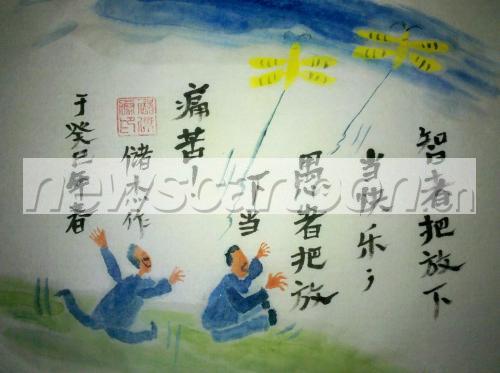 智者把放下
当快乐；
愚者把放
下当
痛苦！
储杰作
于癸巳年春
newscartoon.cn